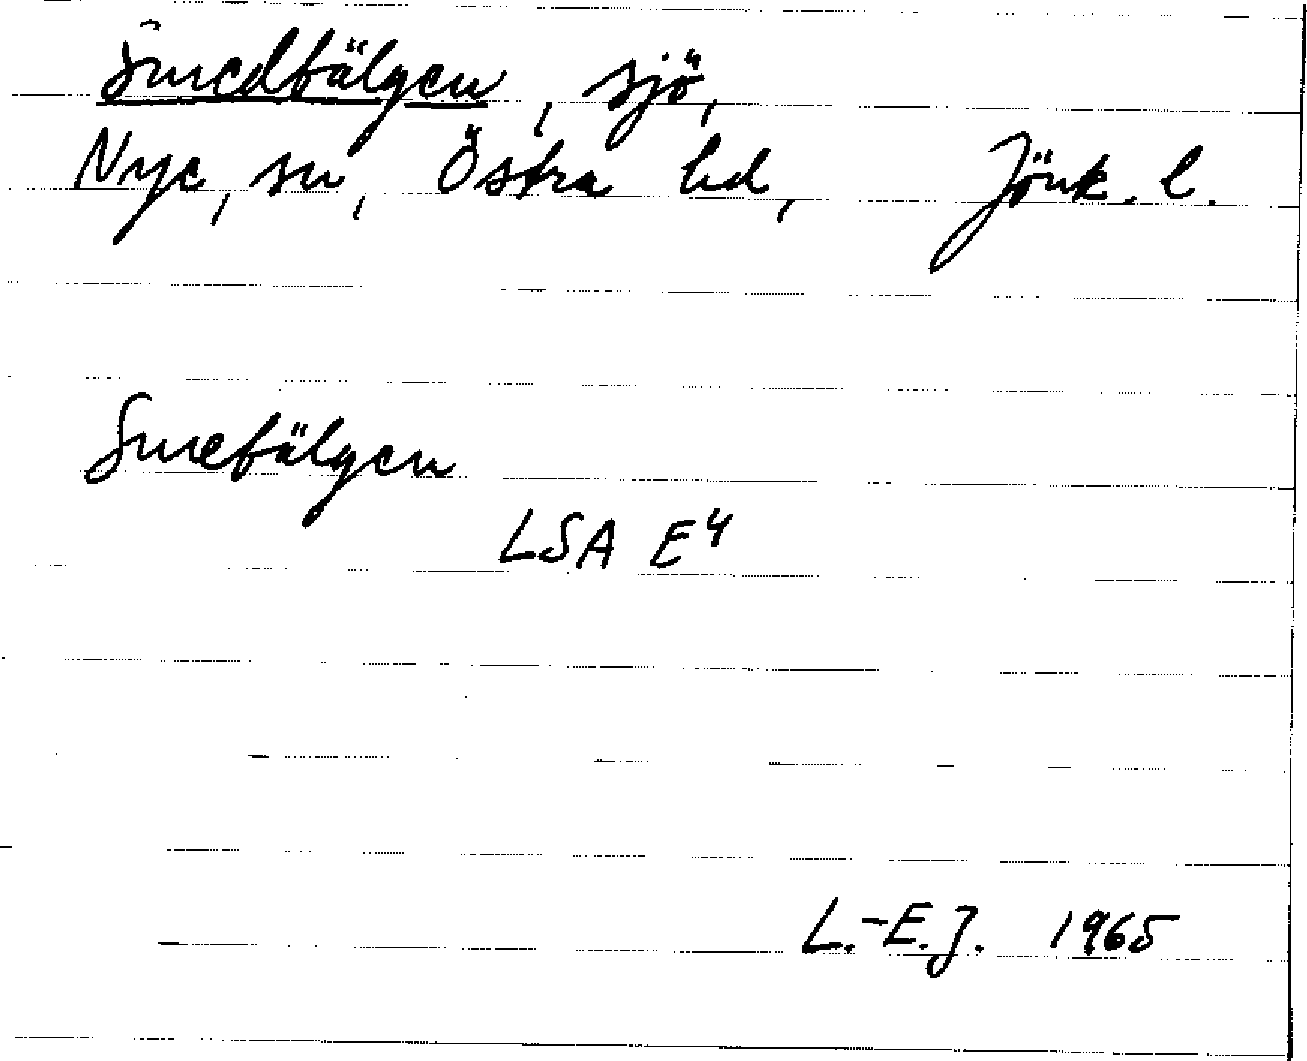 Smedbälgen, sjö,
Nye, sn, Östra hd, Jönk. l.
Smebälgen
LSA E4
L.-E.J. 1965